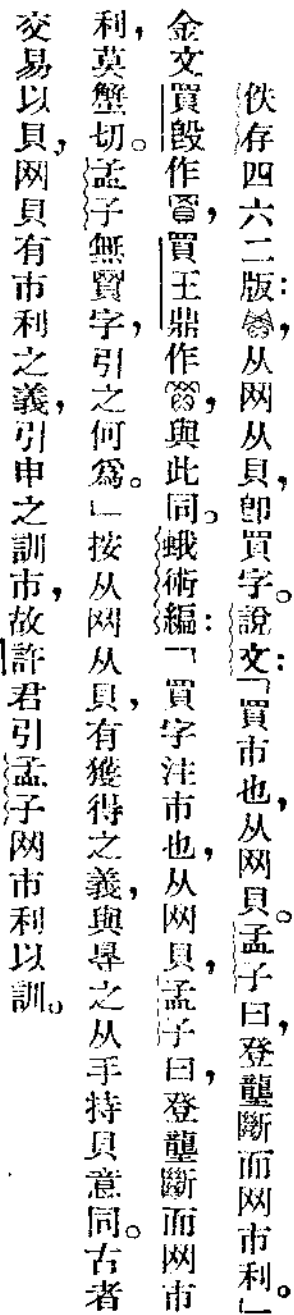 佚存四六二版：，从网从貝，卽買字。說文：「買市也，从网貝。孟子曰，登壟斷而网市利。」
金文買𣪘作，買王鼎作，與此同。蛾術編：「買字注市也，从网貝，孟子曰，登壟斷而网市
利，莫蟹切。孟子無買字，引之何爲。」按从网从貝，有獲得之義，與㝵之从手持貝意同。古者
交易以貝，网貝有市利之義，引申之訓市，故許君引孟子网市利以訓。